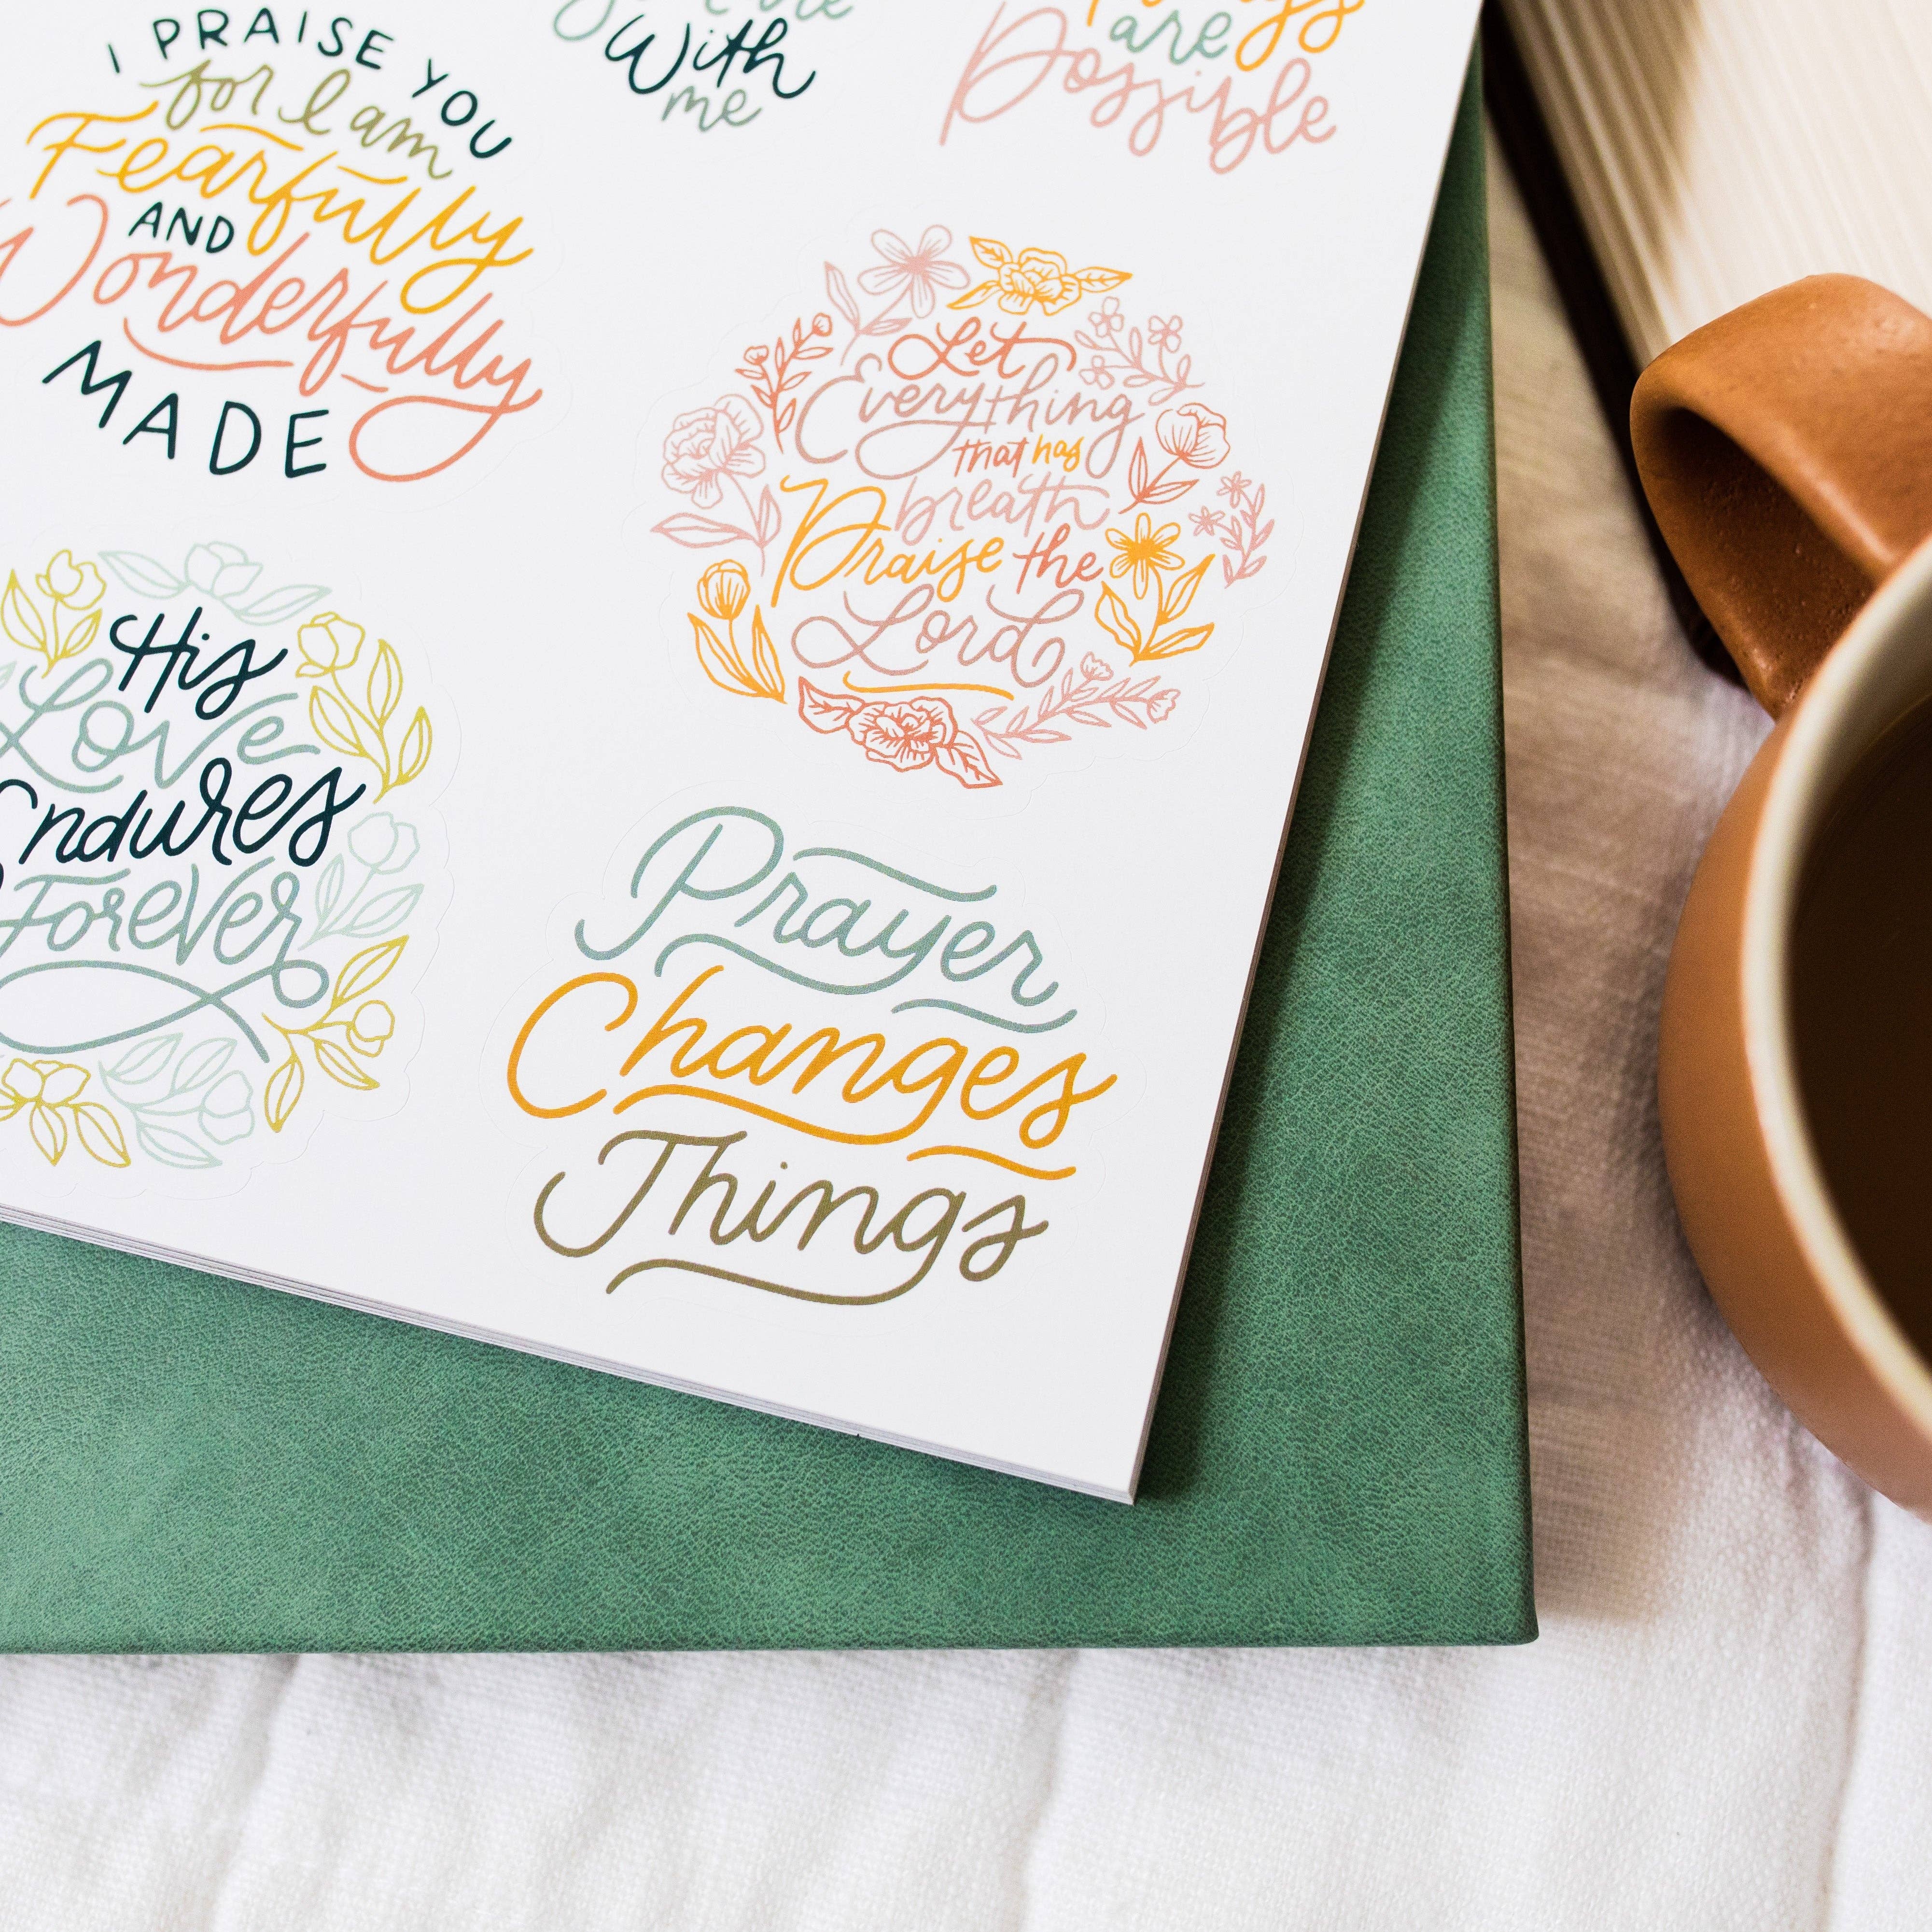 I PRAISE YOU
for I am
Fearfully
AND
Wonderfully
MADE
With
me
are
Possible
Let
Everything
that has
breath
Praise the
Lord
His
Love
Endures
Forever
Prayer
Changes
Things